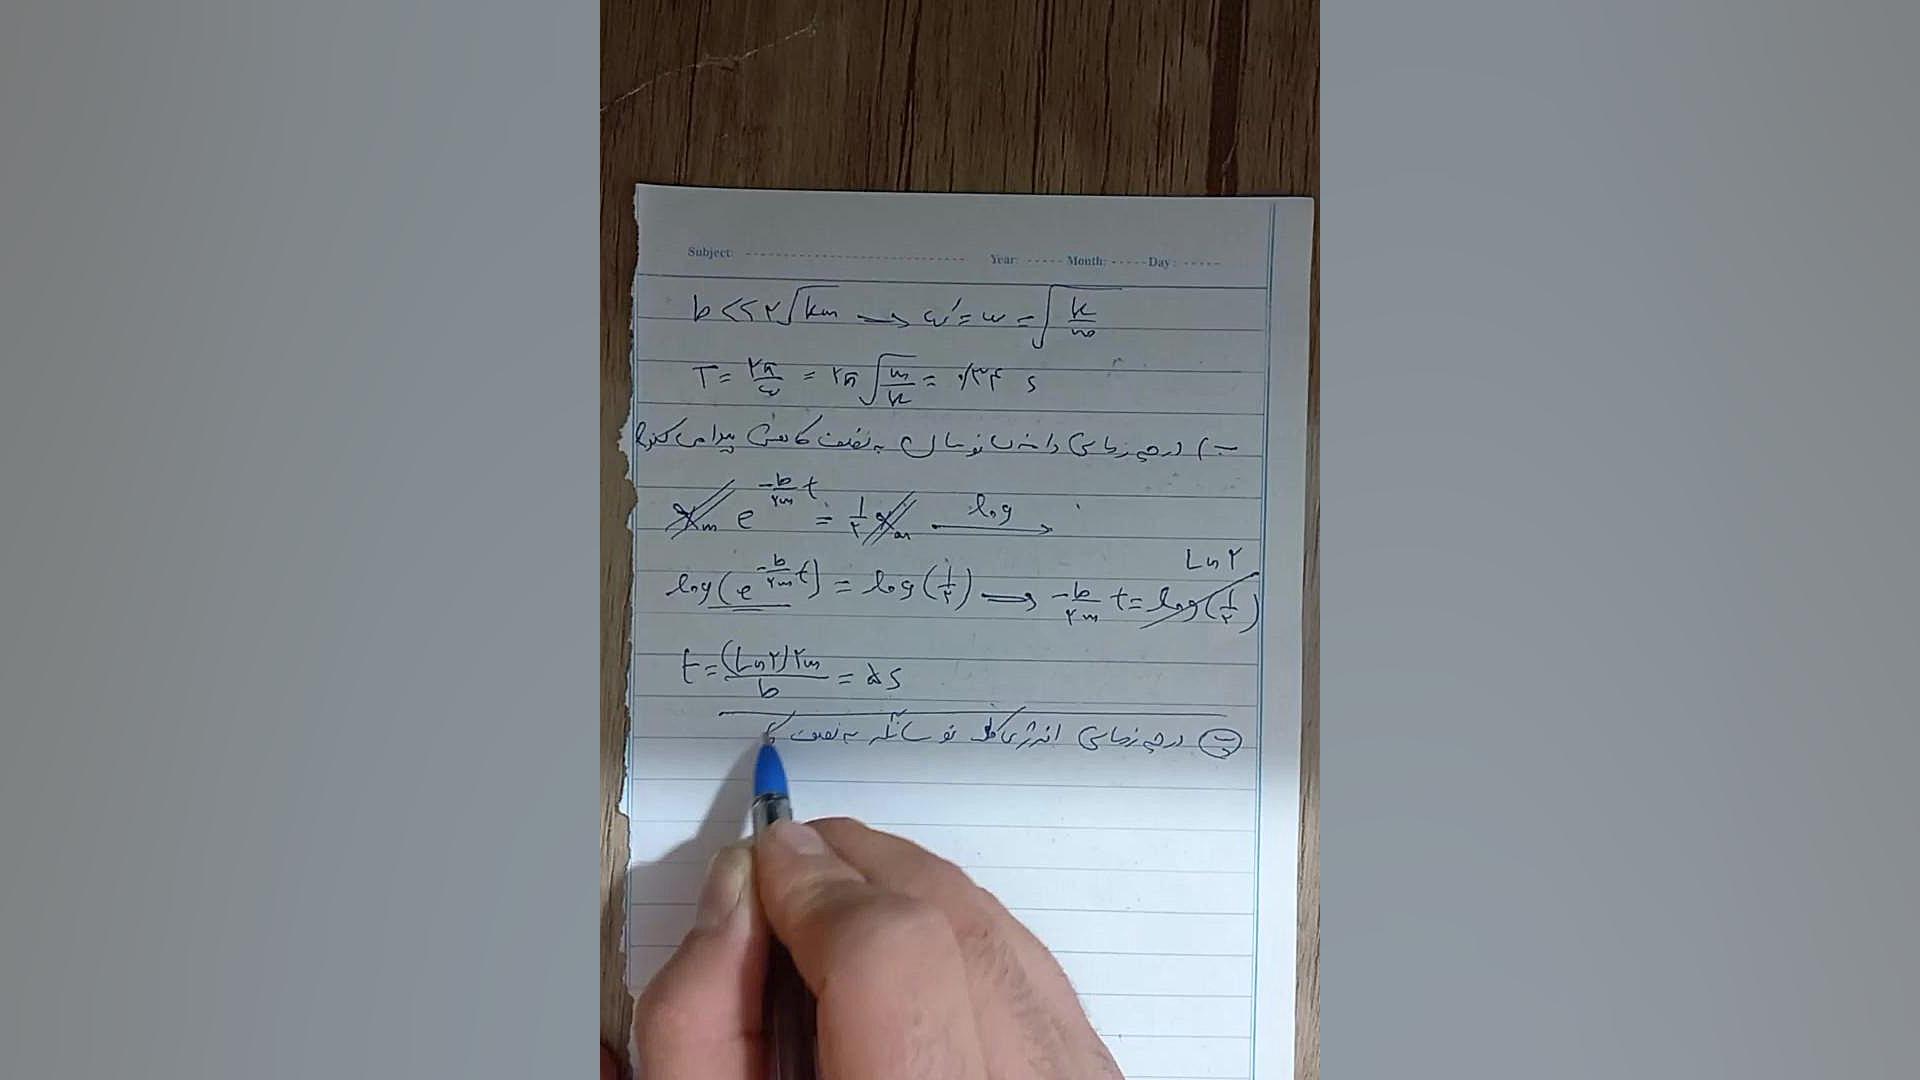 Subject: Year: Month: Day:
b << ۲√km → ω' = ω = √(k/m)
T = ۲π/ω = ۲π√(m/k) = ۰/۳۴ s
ب) در چه زمانی دامنه نوسان به نصف کاهش پیدا می کند
xₘ e^(-b/۲m t) = ۱/۲ xₘ log →
Ln۲
log(e^(-b/۲m t)) = log(۱/۲) → -b/۲m t = log(۱/۲)
t = (Ln۲)۲m / b = ۵s
در چه زمانی انرژی کل نوسانگر به نصف